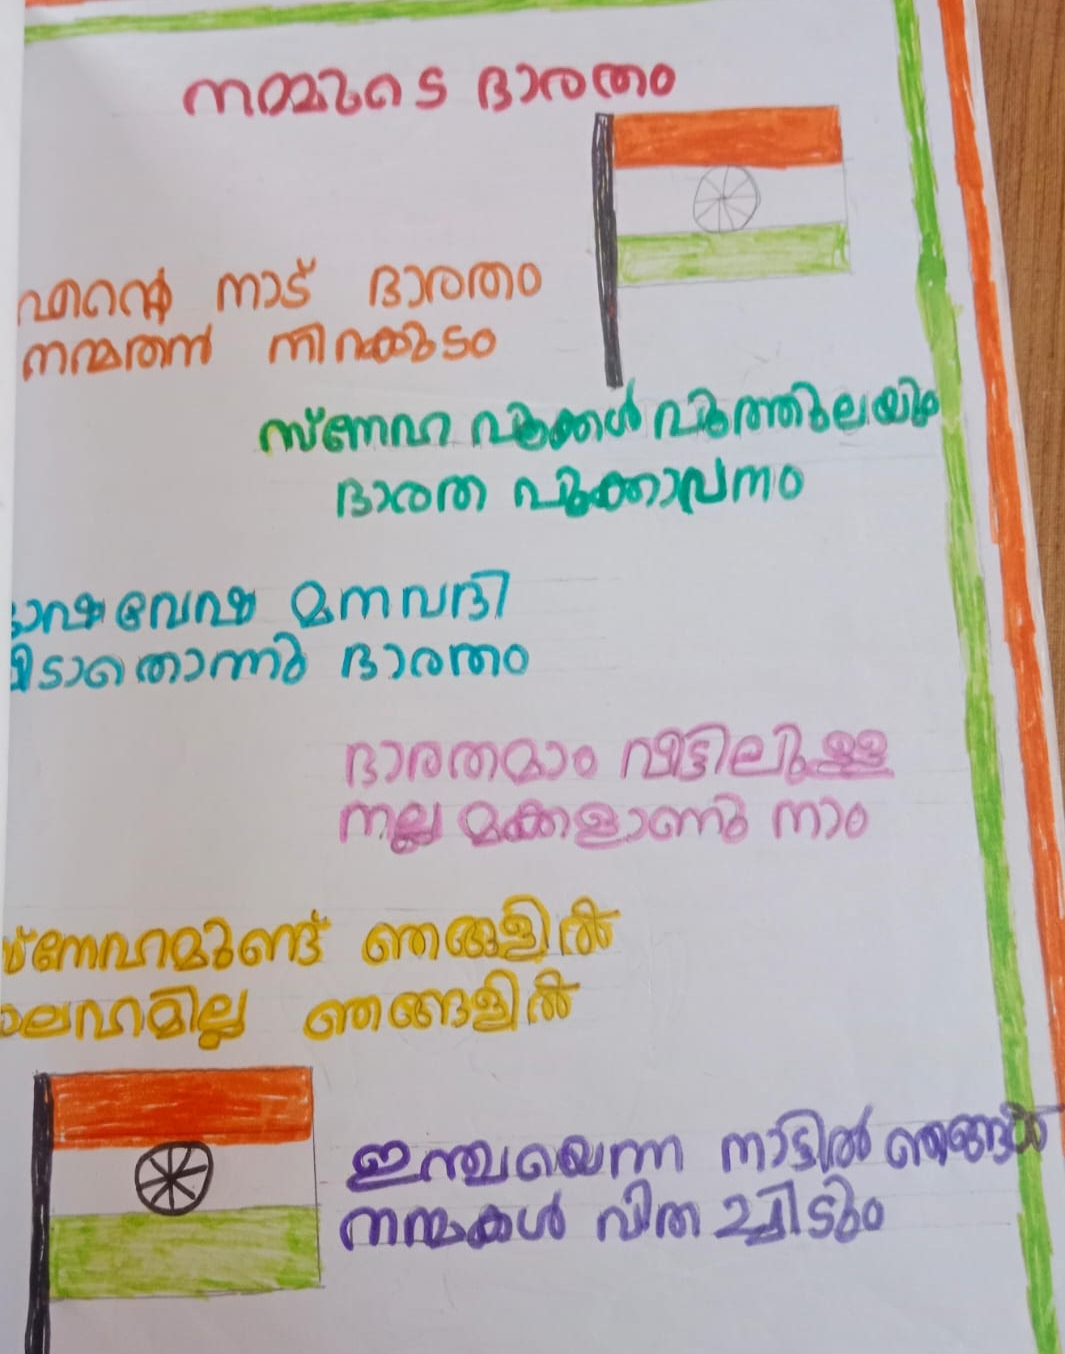 നമ്മുടെ ഭാരതം
എന്റെ നാട് ഭാരതം
നന്മതൻ നിറക്കുടം
സ്ണേഹ പൂക്കൾ പൂത്തുലയും
ഭാരത പൂങ്കാവനം
വേഷ മതമവദി
ഭാരതം
ഭാരതമാം വീട്ടിലുള്ള
നല്ല മക്കളാണു നാം
സ്നേഹമുണ്ട് ഞങ്ങളിൽ
ഞങ്ങളിൽ
ഇന്ത്യയെന്ന നാട്ടിൽ ഞങ്ങൾ
നന്മകൾ വിതച്ചിടും